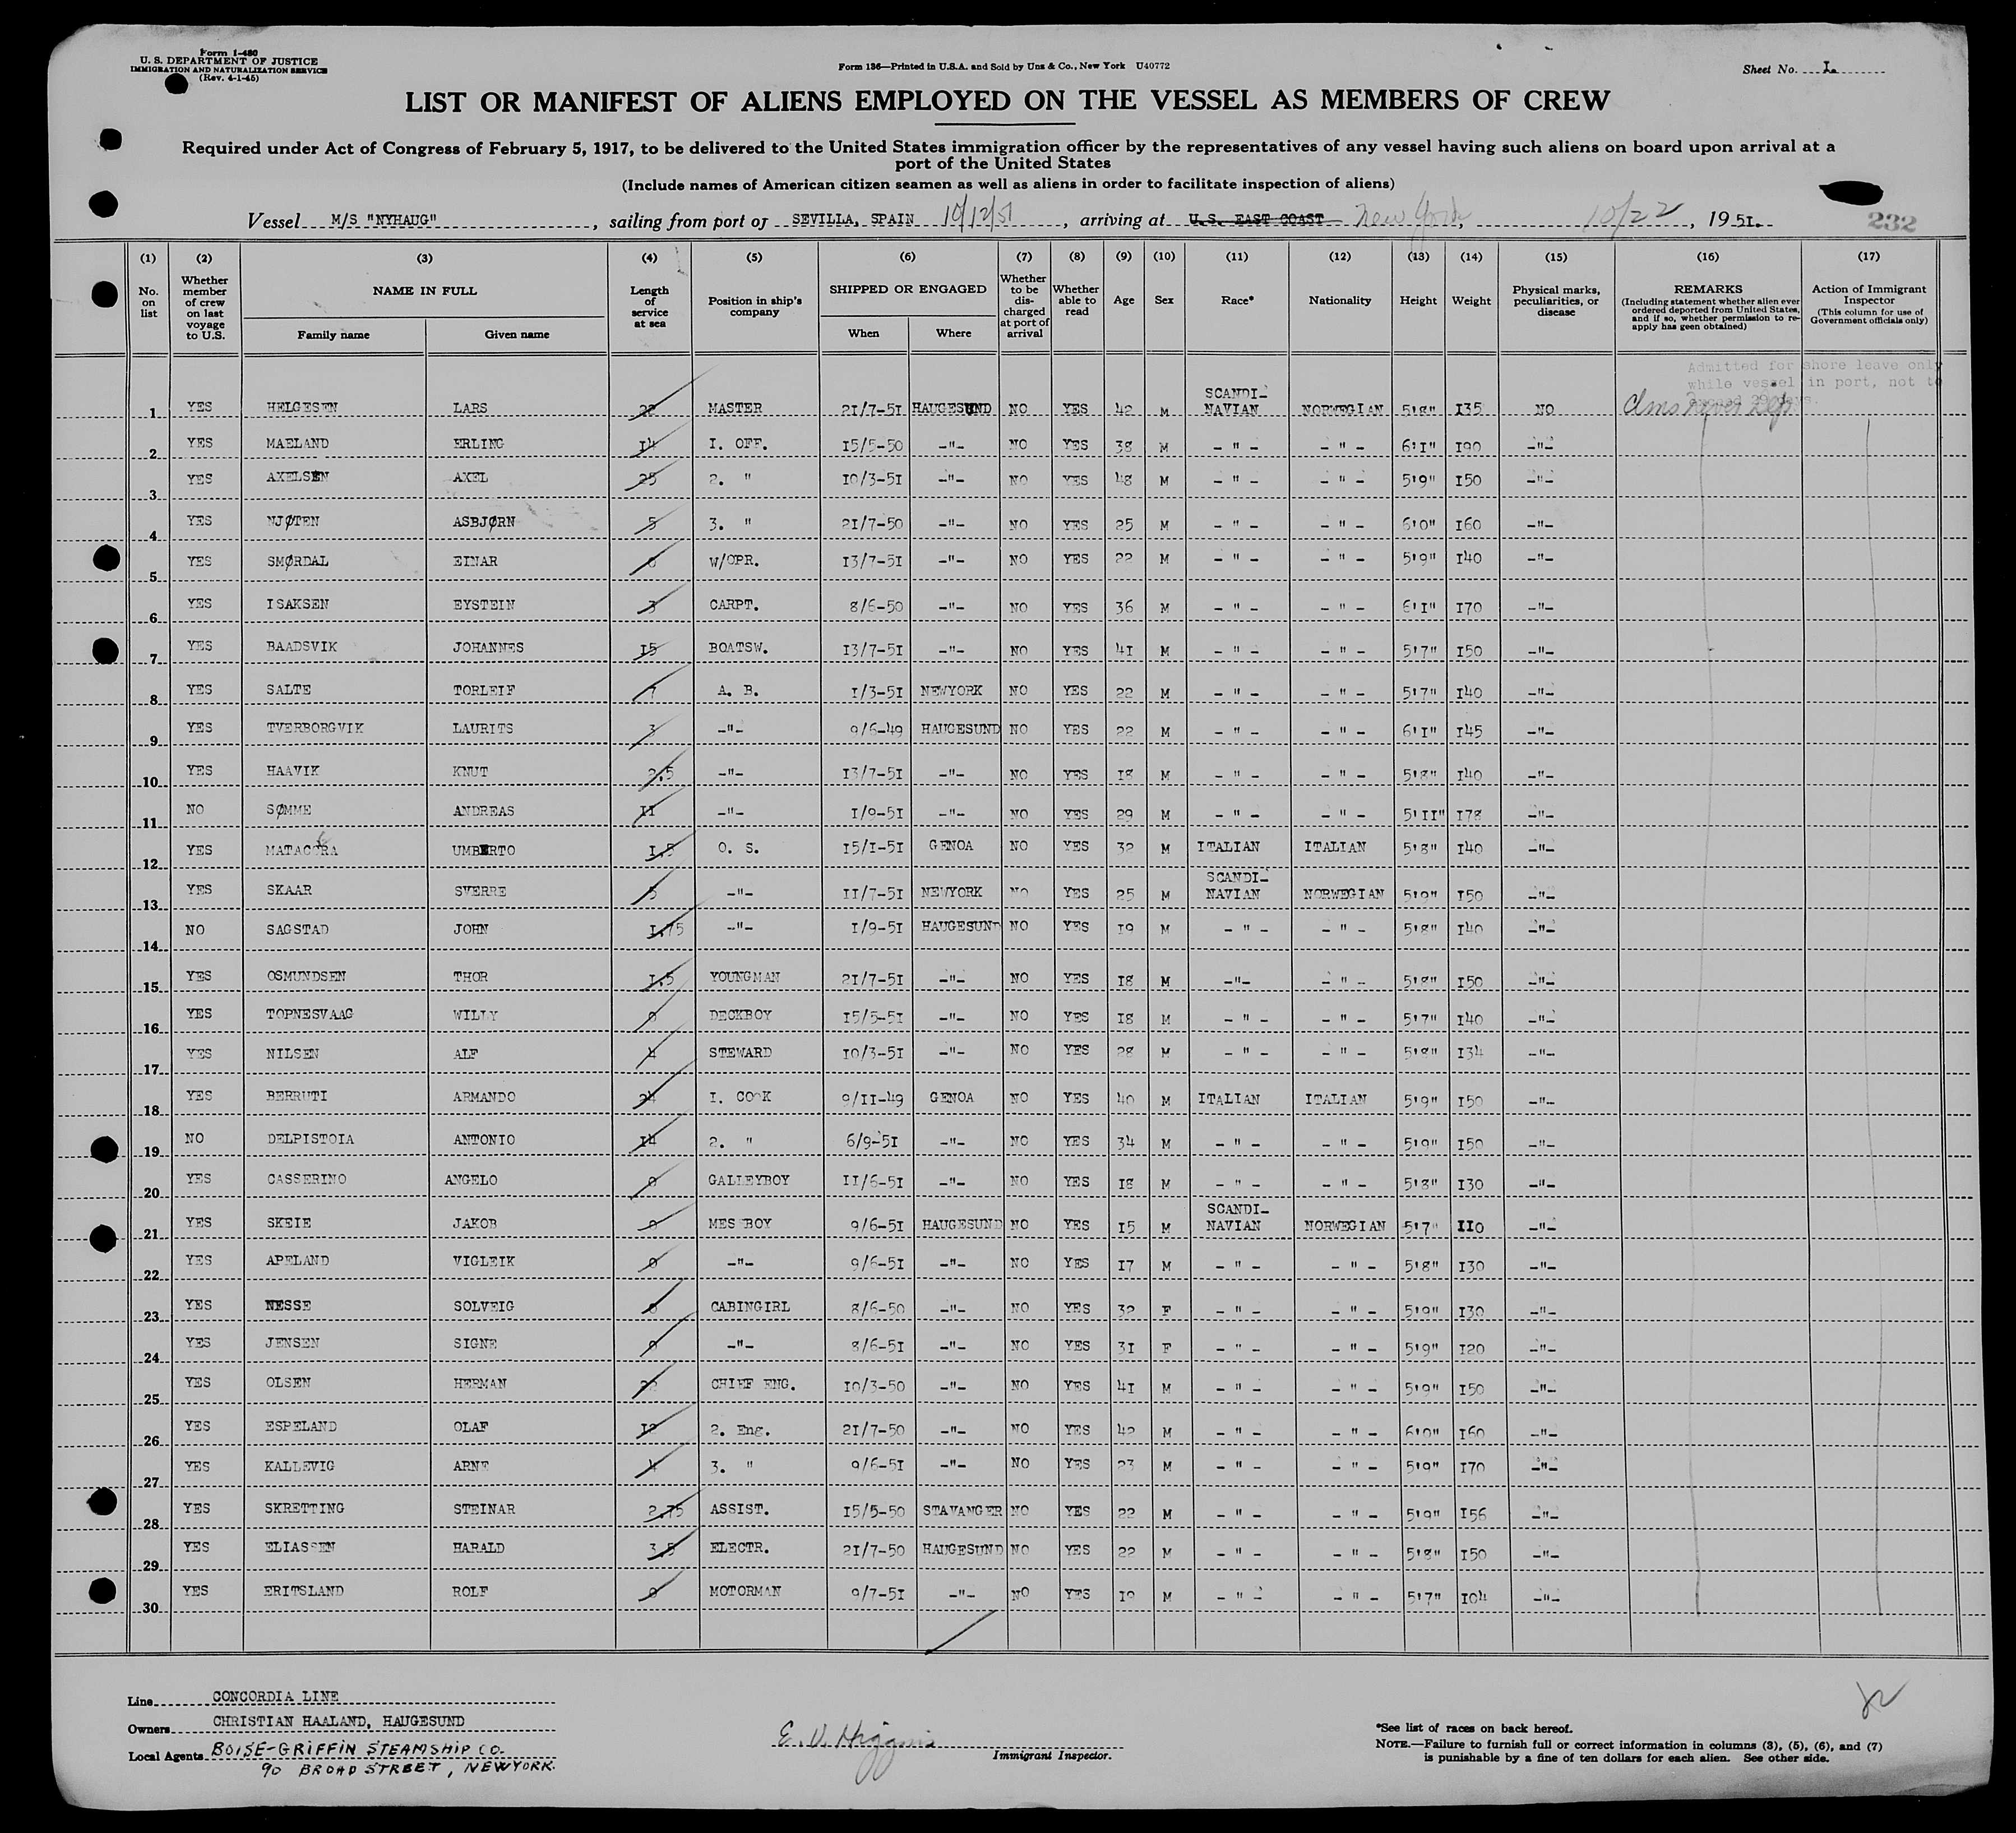 Form I-480
U. S. DEPARTMENT OF JUSTICE
IMMIGRATION AND NATURALIZATION SERVICE
(Rev. 4-1-45)
Form 136—Printed in U.S.A. and Sold by Unz & Co., New York U40772
Sheet No. I.
LIST OR MANIFEST OF ALIENS EMPLOYED ON THE VESSEL AS MEMBERS OF CREW
Required under Act of Congress of February 5, 1917, to be delivered to the United States immigration officer by the representatives of any vessel having such aliens on board upon arrival at a
port of the United States
(Include names of American citizen seamen as well as aliens in order to facilitate inspection of aliens)
Vessel M/S "NYHAUG", sailing from port of SEVILLA, SPAIN 10/12/51, arriving at U.S. EAST COAST New York, 10/22, 1951.
232
(1) (2) (3) (4) (5) (6) (7) (8) (9) (10) (11) (12) (13) (14) (15) (16) (17)
No. on list
Whether member of crew on last voyage to U.S.
NAME IN FULL
Family name Given name
Length of service at sea
Position in ship's company
SHIPPED OR ENGAGED
When Where
Whether to be discharged at port of arrival
Whether able to read
Age
Sex
Race*
Nationality
Height
Weight
Physical marks, peculiarities, or disease
REMARKS
(Including statement whether alien ever ordered deported from United States, and if so, whether permission to re-apply has geen obtained)
Action of Immigrant Inspector
(This column for use of Government officials only)
Admitted for shore leave only
while vessel in port, not to
exceed 29 days.
1 YES HELGESEN LARS 22 MASTER 21/7-51 HAUGESUND NO YES 42 M SCANDI-NAVIAN NORWEGIAN 5'8" 135 NO Clms never dep.
2 YES MAELAND ERLING 14 I. OFF. 15/5-50 -"- NO YES 38 M - " - - " - 6'1" 190 -"-
3 YES AXELSEN AXEL 25 2. " 10/3-51 -"- NO YES 48 M - " - - " - 5'9" 150 -"-
4 YES NJØTEN ASBJØRN 5 3. " 21/7-50 -"- NO YES 25 M - " - - " - 6'0" 160 -"-
5 YES SMØRDAL EINAR W/OPR. 13/7-51 -"- NO YES 22 M - " - - " - 5'9" 140 -"-
6 YES ISAKSEN EYSTEIN 3 CARPT. 8/6-50 -"- NO YES 36 M - " - - " - 6'1" 170 -"-
7 YES BAADSVIK JOHANNES 15 BOATSW. 13/7-51 -"- NO YES 41 M - " - - " - 5'7" 150 -"-
8 YES SALTE TORLEIF 7 A. B. 1/3-51 NEWYORK NO YES 22 M - " - - " - 5'7" 140 -"-
9 YES TVERBORGVIK LAURITS 3 -"- 9/6-49 HAUGESUND NO YES 22 M - " - - " - 6'1" 145 -"-
10 YES HAAVIK KNUT 2,5 -"- 13/7-51 -"- NO YES 18 M - " - - " - 5'8" 140 -"-
11 NO SØMME ANDREAS 11 -"- 1/9-51 -"- NO YES 29 M - " - - " - 5'11" 178 -"-
12 YES UMBERTO 1,5 O. S. 15/1-51 GENOA NO YES 32 M ITALIAN ITALIAN 5'8" 140 -"-
13 YES SKAAR SVERRE 5 -"- 11/7-51 NEWYORK NO YES 25 M SCANDI-NAVIAN NORWEGIAN 5'9" 150 -"-
14 NO SAGSTAD JOHN 1,75 -"- 1/9-51 HAUGESUND NO YES 19 M - " - - " - 5'8" 140 -"-
15 YES OSMUNDSEN THOR 1,5 YOUNGMAN 21/7-51 -"- NO YES 18 M -"- - " - 5'8" 150 -"-
16 YES TOPNESVAAG WILLY 0 DECKBOY 15/5-51 -"- NO YES 18 M - " - - " - 5'7" 140 -"-
17 YES NILSEN ALF 4 STEWARD 10/3-51 -"- NO YES 28 M - " - - " - 5'8" 134 -"-
18 YES BERRUTI ARMANDO 24 I. COOK 9/11-49 GENOA NO YES 40 M ITALIAN ITALIAN 5'9" 150 -"-
19 NO DELPISTOIA ANTONIO 14 2. " 6/9-51 -"- NO YES 34 M - " - - " - 5'9" 150 -"-
20 YES CASSERINO ANGELO 0 GALLEYBOY 11/6-51 -"- NO YES 18 M - " - - " - 5'8" 130 -"-
21 YES SKEIE JAKOB 0 MESSBOY 9/6-51 HAUGESUND NO YES 15 M SCANDI-NAVIAN NORWEGIAN 5'7" 110 -"-
22 YES APELAND VIGLEIK 0 -"- 9/6-51 -"- NO YES 17 M - " - - " - 5'8" 130 -"-
23 YES NESSE SOLVEIG 0 CABINGIRL 8/6-50 -"- NO YES 32 F - " - - " - 5'9" 130 -"-
24 YES JENSEN SIGNE 0 -"- 8/6-51 -"- NO YES 31 F - " - - " - 5'9" 120 -"-
25 YES OLSEN HERMAN 22 CHIEF ENG. 10/3-50 -"- NO YES 41 M - " - - " - 5'9" 150 -"-
26 YES ESPELAND OLAF 12 2. Eng. 21/7-50 -"- NO YES 42 M - " - - " - 6'0" 160 -"-
27 YES KALLEVIG ARNE 4 3. " 9/6-51 -"- NO YES 23 M - " - - " - 5'9" 170 -"-
28 YES SKRETTING STEINAR 2,75 ASSIST. 15/5-50 STAVANGER NO YES 22 M - " - - " - 5'9" 156 -"-
29 YES ELIASSEN HARALD 3,5 ELECTR. 21/7-50 HAUGESUND NO YES 22 M - " - - " - 5'8" 150 -"-
30 YES ERITSLAND ROLF 0 MOTORMAN 9/7-51 -"- NO YES 19 M - " - - " - 5'7" 104 -"-
Line CONCORDIA LINE
Owners CHRISTIAN HAALAND, HAUGESUND
Local Agents BOISE-GRIFFIN STEAMSHIP CO.
90 BROAD STREET, NEWYORK.
E. V. Higgins
Immigrant Inspector.
*See list of races on back hereof.
NOTE.—Failure to furnish full or correct information in columns (3), (5), (6), and (7)
is punishable by a fine of ten dollars for each alien. See other side.